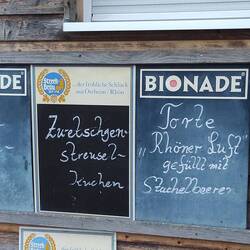 DE
Streck
Bräu
der fröhliche Schluck
aus Ostheim / Rhön
Zwetschgen-
streusel-
kuchen
BIONADE
Torte
„Rhöner Luft"
gefüllt mit
Stachelbeeren